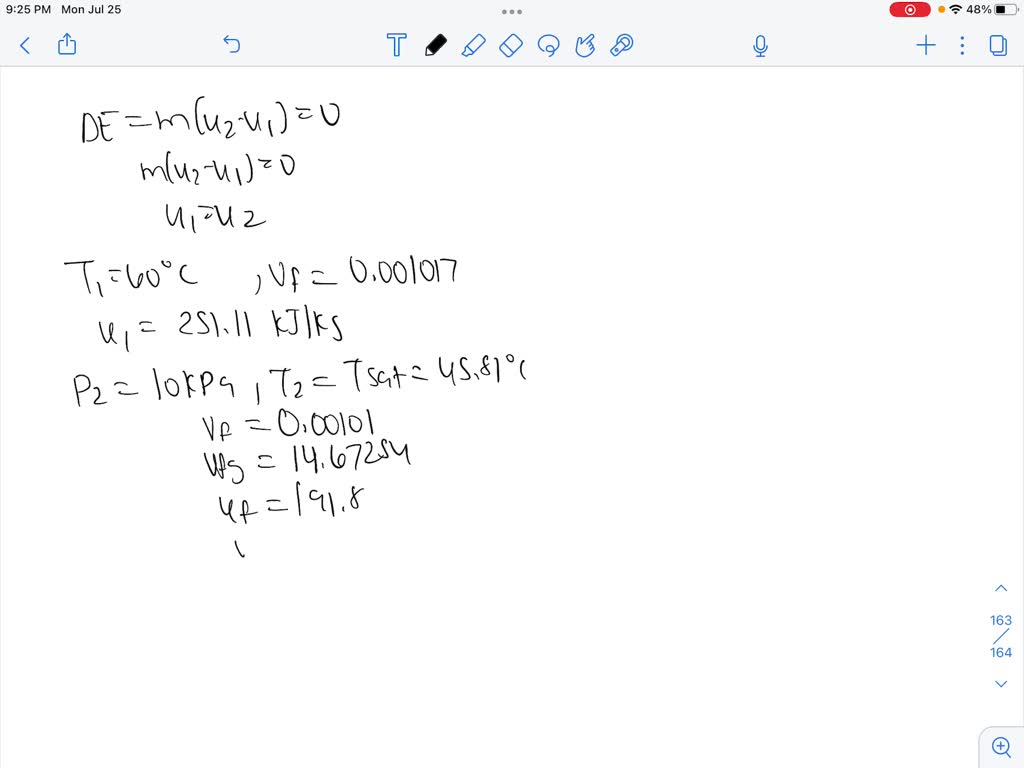 9:25 PM Mon Jul 25
48%
T
DE = m(u2-u1) = 0
m(u2-u1) = 0
u1 = u2
T1 = 60°C , Vf = 0.001017
u1 = 251.11 kJ/kg
P2 = 10kPa , T2 = Tsat = 45.81°C
Vf = 0.00101
Vfg = 14.67254
uf = 191.8
163
164